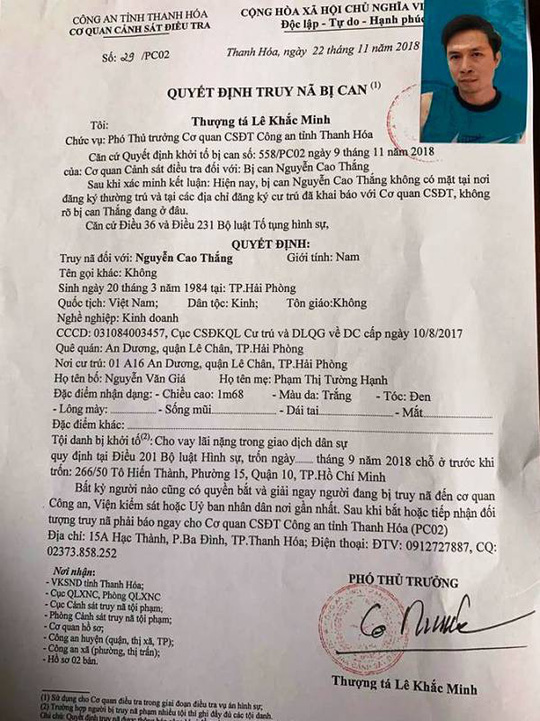 CÔNG AN TỈNH THANH HÓA
CƠ QUAN CẢNH SÁT ĐIỀU TRA
Số: 29 /PC02
CỘNG HÒA XÃ HỘI CHỦ NGHĨA VI
Độc lập - Tự do - Hạnh phúc
Thanh Hóa, ngày 22 tháng 11 năm 2018
QUYẾT ĐỊNH TRUY NÃ BỊ CAN (1)
Tôi: Thượng tá Lê Khắc Minh
Chức vụ: Phó Thủ trưởng Cơ quan CSĐT Công an tỉnh Thanh Hóa
Căn cứ Quyết định khởi tố bị can số: 558/PC02 ngày 9 tháng 11 năm 2018
của: Cơ quan Cảnh sát điều tra đối với: Bị can Nguyễn Cao Thắng
Sau khi xác minh kết luận: Hiện nay, bị can Nguyễn Cao Thắng không có mặt tại nơi
đăng ký thường trú và tại các địa chỉ đăng ký cư trú đã khai báo với Cơ quan CSĐT, không
rõ bị can Thắng đang ở đâu.
Căn cứ Điều 36 và Điều 231 Bộ luật Tố tụng hình sự,
QUYẾT ĐỊNH:
Truy nã đối với: Nguyễn Cao Thắng Giới tính: Nam
Tên gọi khác: Không
Sinh ngày 20 tháng 3 năm 1984 tại: TP.Hải Phòng
Quốc tịch: Việt Nam; Dân tộc: Kinh; Tôn giáo:Không
Nghề nghiệp: Kinh doanh
CCCD: 031084003457, Cục CSĐKQL Cư trú và DLQG về DC cấp ngày 10/8/2017
Quê quán: An Dương, quận Lê Chân, TP.Hải Phòng
Nơi cư trú: 01 A16 An Dương, quận Lê Chân, TP.Hải Phòng
Họ tên bố: Nguyễn Văn Giá Họ tên mẹ: Phạm Thị Tường Hạnh
Đặc điểm nhận dạng: - Chiều cao: 1m68 - Màu da: Trắng - Tóc: Đen
- Lông mày: - Sống mũi - Dái tai - Mắt
Đặc điểm khác:
Tội danh bị khởi tố(2): Cho vay lãi nặng trong giao dịch dân sự
quy định tại Điều 201 Bộ luật Hình sự, trốn ngày...... tháng 9 năm 2018 chỗ ở trước khi
trốn: 266/50 Tô Hiến Thành, Phường 15, Quận 10, TP.Hồ Chí Minh
Bất kỳ người nào cũng có quyền bắt và giải ngay người đang bị truy nã đến cơ quan
Công an, Viện kiểm sát hoặc Uỷ ban nhân dân nơi gần nhất. Sau khi bắt hoặc tiếp nhận đối
tượng truy nã phải báo ngay cho Cơ quan CSĐT Công an tỉnh Thanh Hóa (PC02)
Địa chỉ: 15A Hạc Thành, P.Ba Đình, TP.Thanh Hóa; Điện thoại: ĐTV: 0912727887, CQ:
02373.858.252
Nơi nhận:
- VKSND tỉnh Thanh Hóa;
- Cục QLXNC, Phòng QLXNC
- Cục Cảnh sát truy nã tội phạm;
- Phòng Cảnh sát truy nã tội phạm;
- Cơ quan hồ sơ;
- Công an huyện (quận, thị xã, TP);
- Công an xã (phường, thị trấn);
- Hồ sơ 02 bản.
PHÓ THỦ TRƯỞNG
Thượng tá Lê Khắc Minh
(1) Sử dụng cho Cơ quan điều tra trong giai đoạn điều tra vụ án hình sự;
(2) Trường hợp người bị truy nã phạm nhiều tội thì ghi đầy đủ các tội danh.